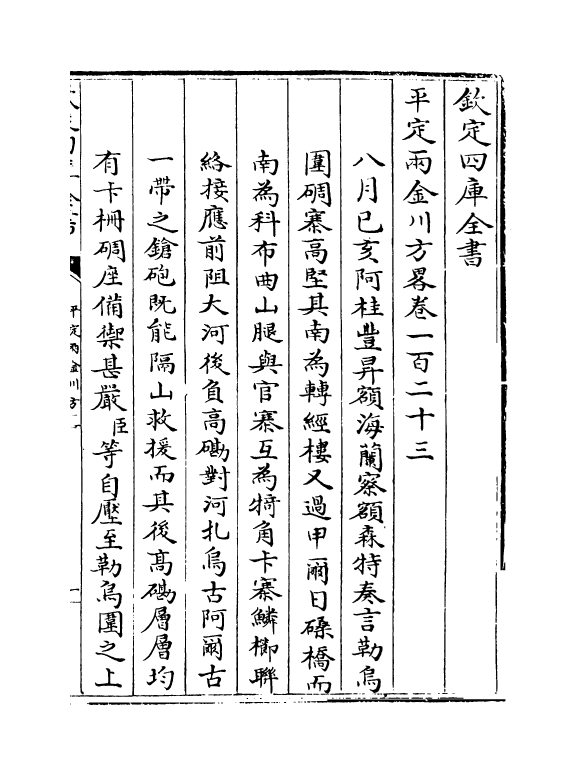 欽定四庫全書
平定兩金川方畧卷一百二十三
八月已亥阿桂豐昇額海蘭察額森特奏言勒烏
圍碉寨高堅其南為轉經樓又過甲爾日磉橋而
南為科布曲山腿與官寨互為犄角卡寨鱗櫛聯
絡接應前阻大河後負高磡對河扎烏古阿爾古
一帶之鎗砲既能隔山救援而其後高磡層層均
有卡柵碉座備禦甚嚴臣等自壓至勒烏圍之上
平定兩金川方
一